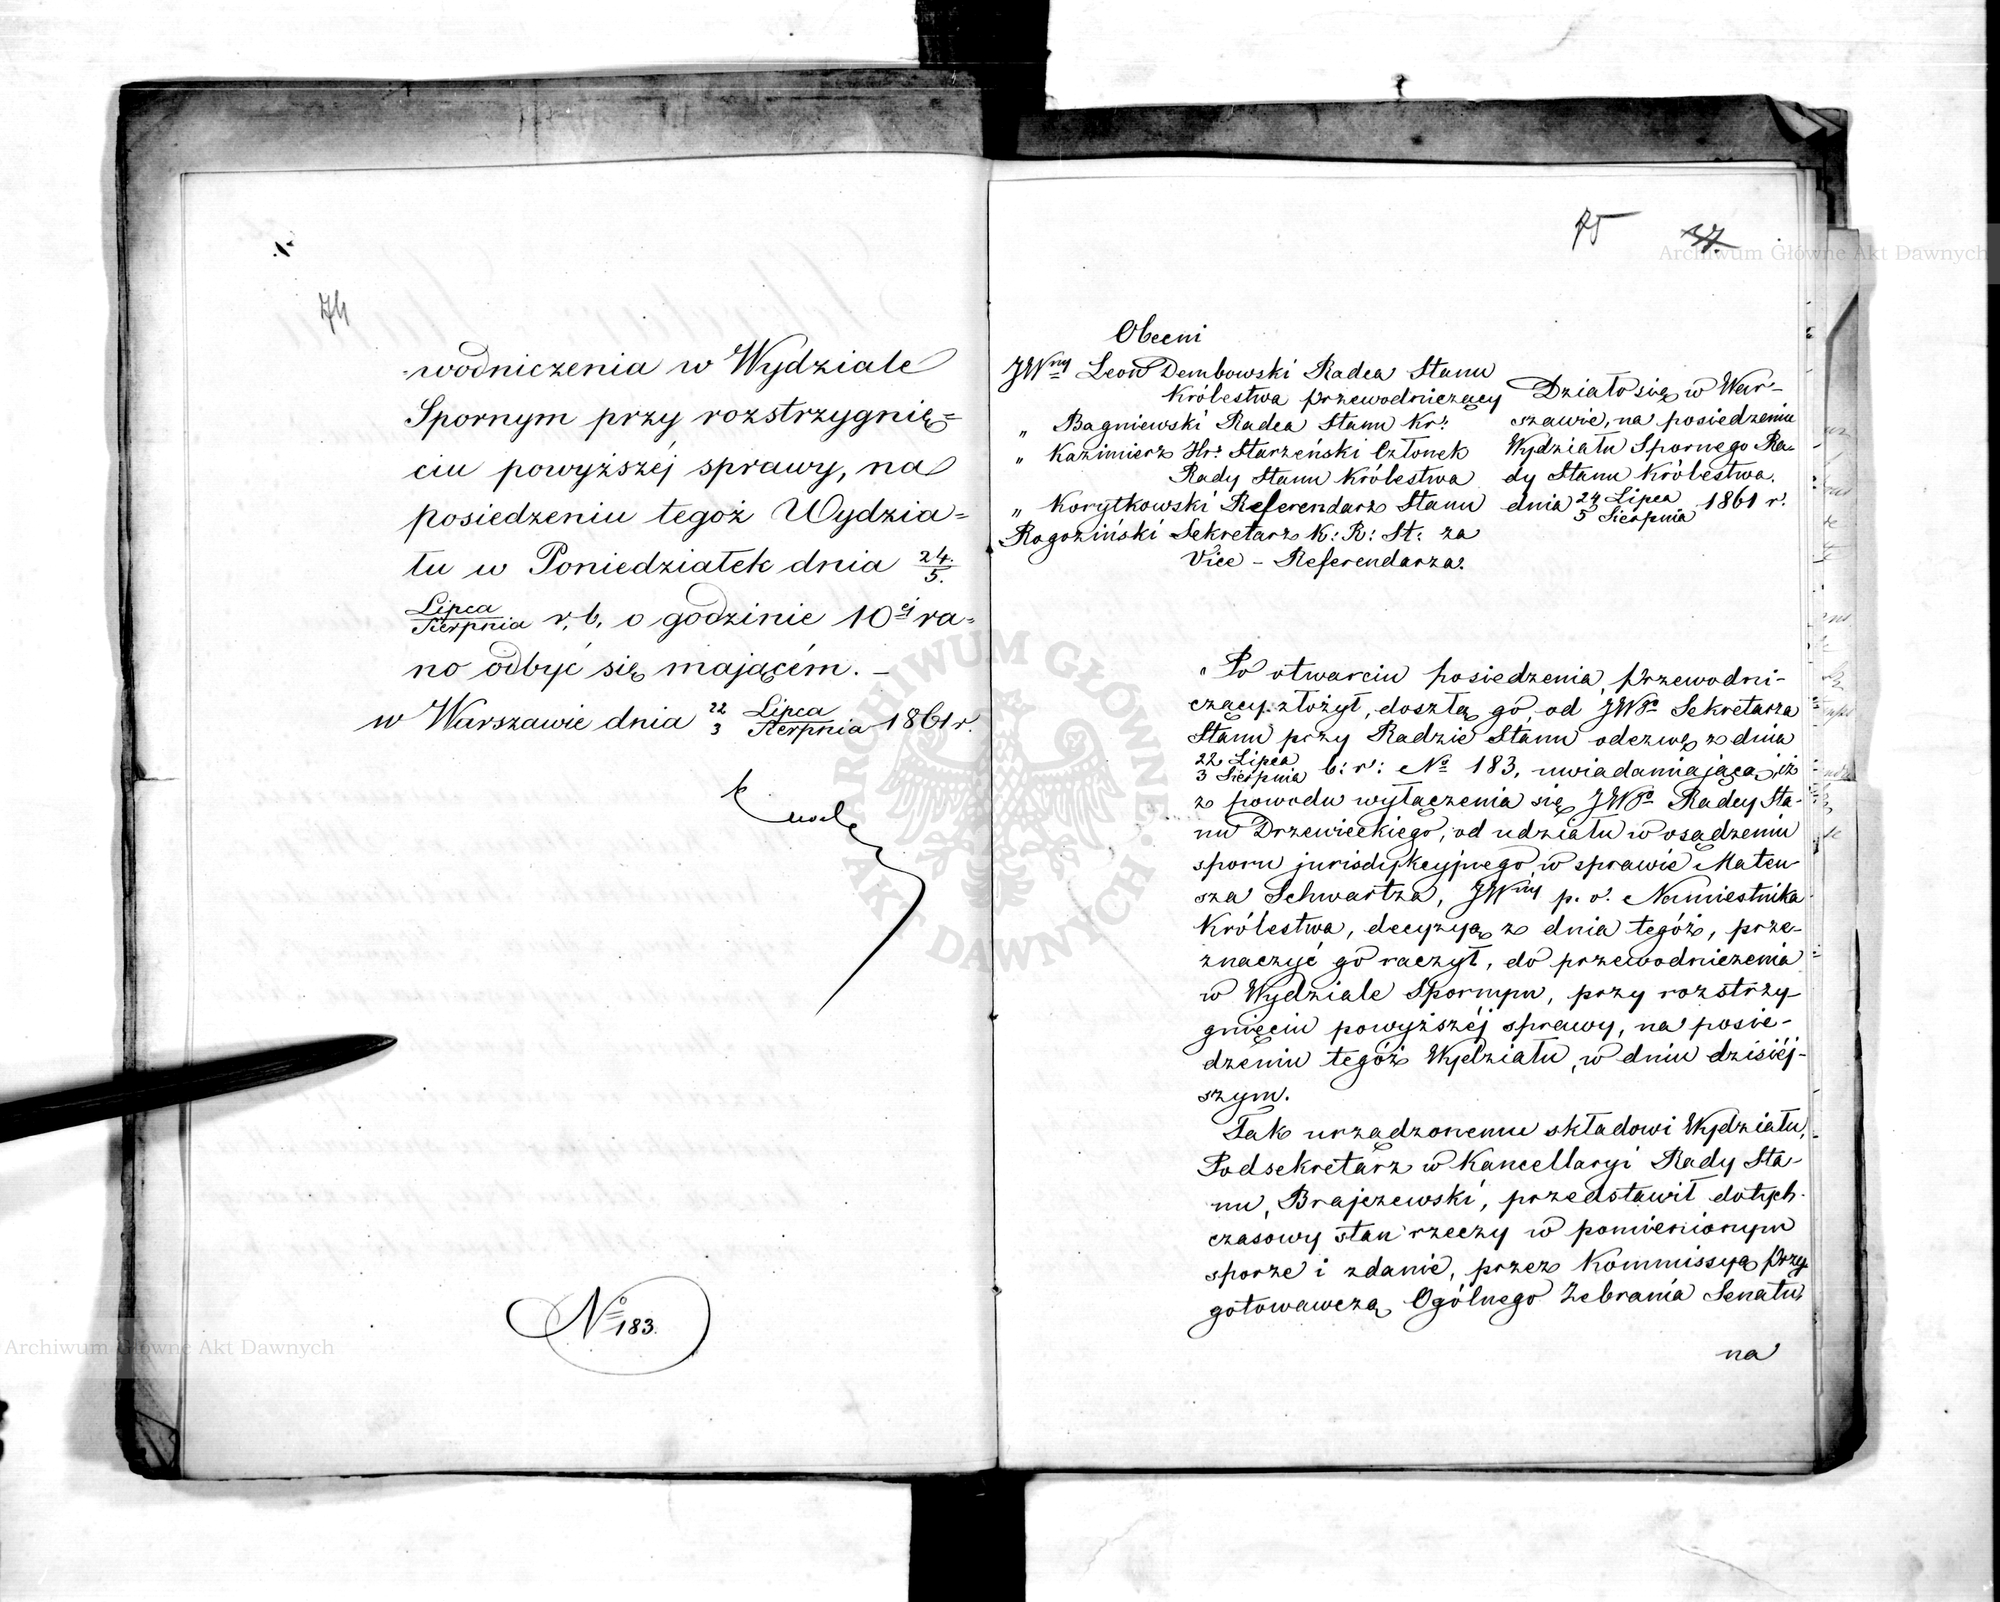 74
wodniczenia w Wydziale
Spornym przy rozstrzygnię=
ciu powyższéj sprawy, na
posiedzeniu tegoż Wydzia=
łu w Poniedziałek dnia 24/5.
Lipca/Sierpnia r. b. o godzinie 10ej ra=
no odbyć się mającém. –
w Warszawie dnia 22/3 Lipca/Sierpnia 1861 r.
No 183.
75 37.
Obecni
JWny Leon Dembowski Radca Stanu
Królestwa przewodniczący
„ Bagniewski Radca Stanu Kr:
„ Kazimierz Hr: Starzeński Członek
Rady Stanu Królestwa
„ Korytkowski Referendarz Stanu
Rogoziński Sekretarz K: R: St: za
Vice – Referendarza.
Działo się w War–
szawie, na posiedzeniu
Wydziału Spornego Ra–
dy Stanu Królestwa.
dnia 24 Lipca/5 Sierpnia 1861 r.
Po otwarciu posiedzenia, przewodni–
czący złożył, doszłą go, od JWo Sekretarza
Stanu przy Radzie Stanu odezwę z dnia
22 Lipca/3 Sierpnia b: r: No 183, uwiadamiającą, iż
z powodu wyłączenia się JWo Radcy Sta–
nu Drzewieckiego, od udziału w osądzeniu
sporu jurisdykcyjnego, w sprawie Mateu
sza Schwartza, JWny p. o. Namiestnika
Królestwa, decyzyą z dnia tegóż, prze–
znaczyć go raczył, do przewodniczenia
w Wydziale Spornym, przy rozstrzy–
gnięciu powyższéj sprawy, na posie–
dzeniu tegóż Wydziału, w dniu dzisiéj–
szym.
Tak urządzonemu składowi Wydziału,
Podsekretarz w Kancellaryi Rady Sta–
nu, Brajczewski, przedstawił dotych–
czasowy stan rzeczy w pomienionym
sporze i zdanie, przez Kommissyą przy
gotowawczą Ogólnego Zebrania Senatu,
na
ARCHIWUM GŁÓWNE AKT DAWNYCH
Archiwum Główne Akt Dawnych
Archiwum Główne Akt Dawnych